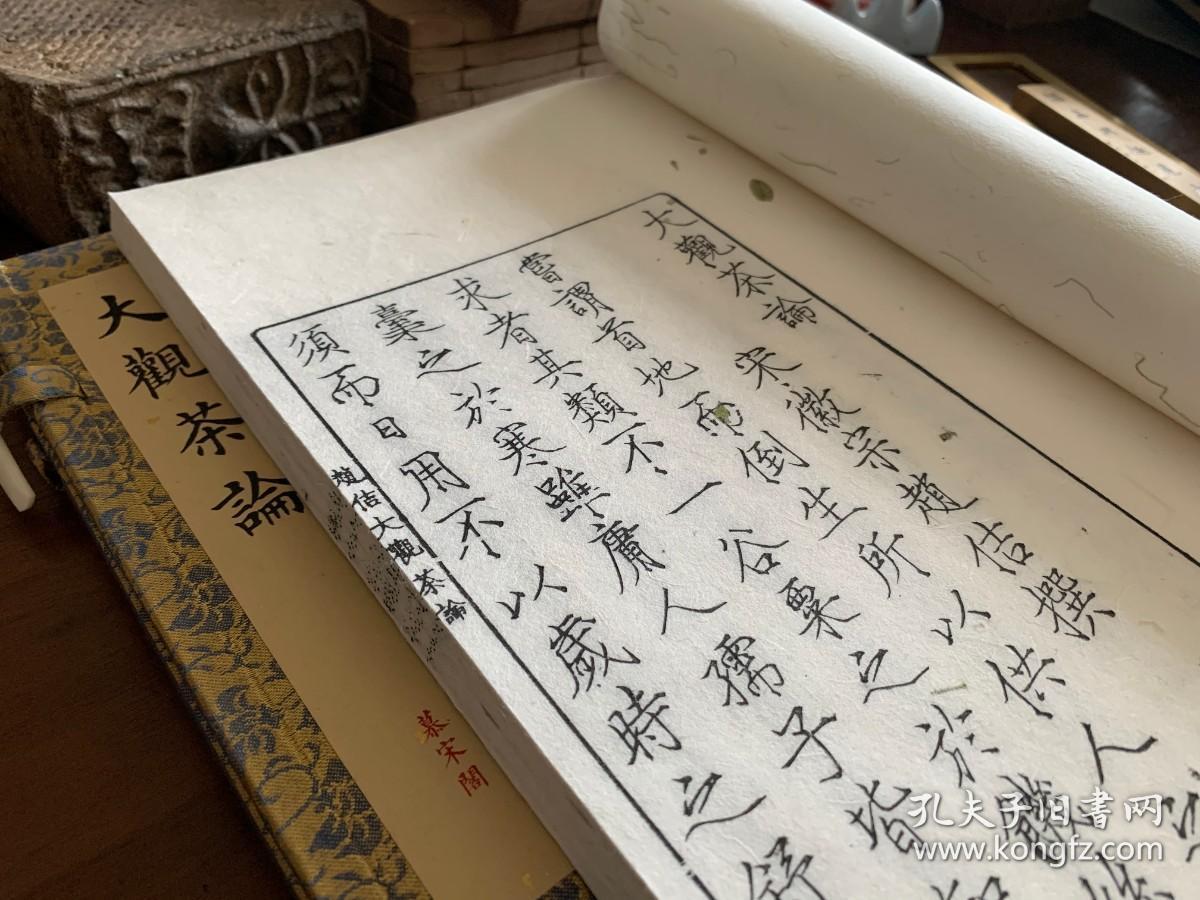 大觀茶論 宋徽宗趙佶撰
嘗謂首地而倒生所以供人
求者其類不一谷粟之於饑
之於寒雖庸人孺子皆
須而日用不以歲時之舒
趙佶大觀茶論
大觀茶論
慕宋閣
孔夫子旧书网
www.kongfz.com